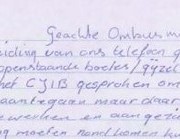 Geachte Ombusm
iding van ons telefoon g
openstaande boetes/gijzel
het CJIB gesproken om
aantegaan maar daar
werken en aangezi
moeten rond komen